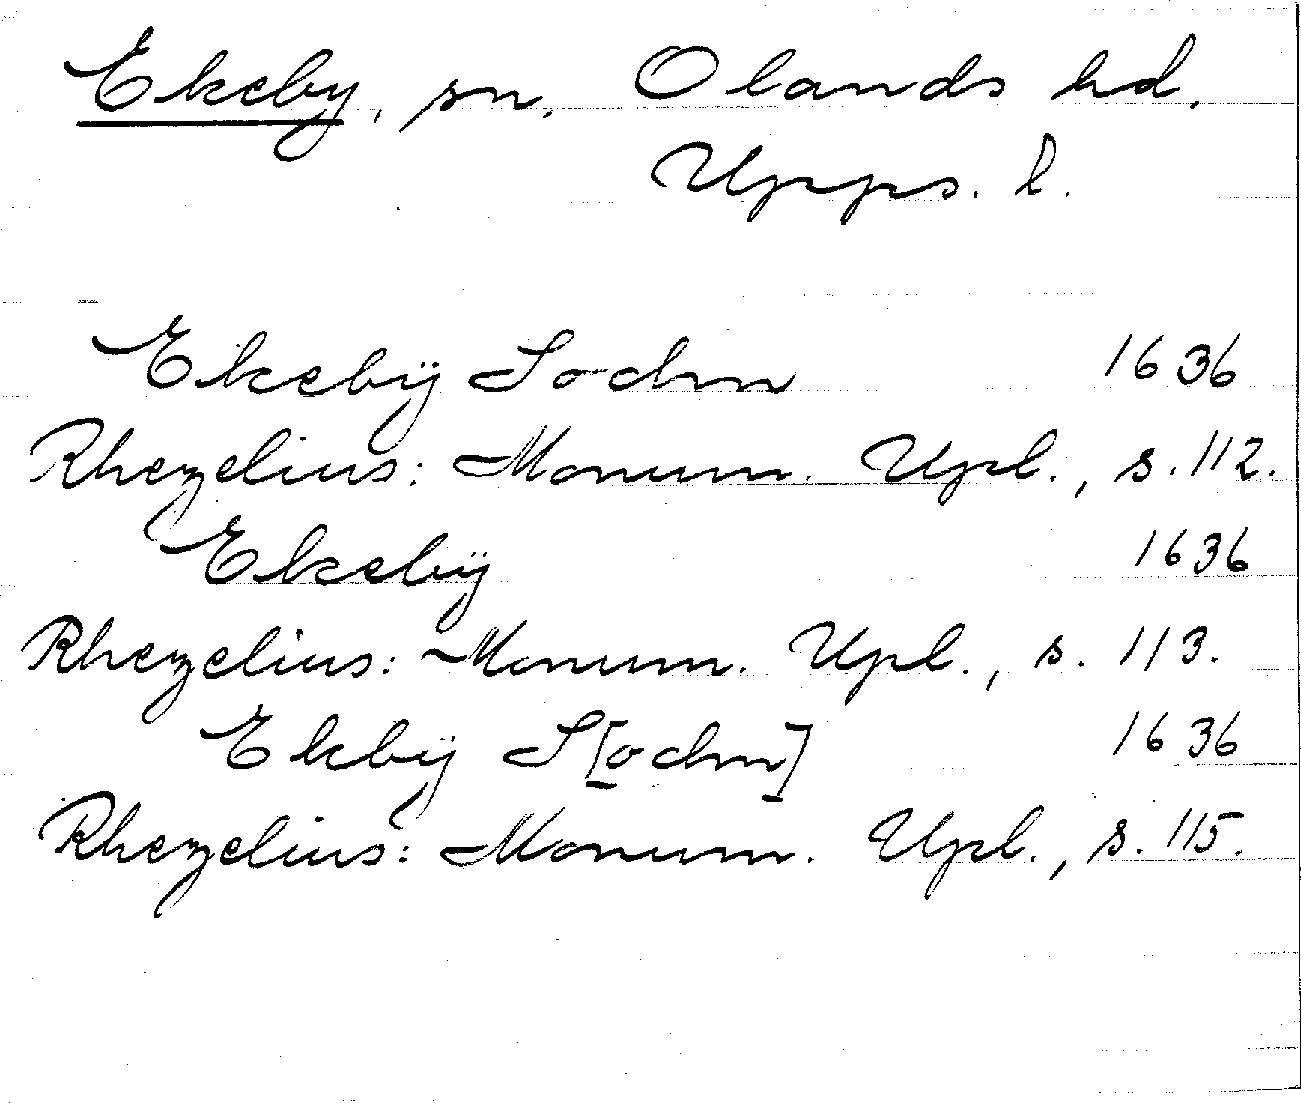 Ekeby, sn, Olands hd.
Upps. l.
Ekebÿ Sochn 1636
Rhezelius: Monum. Upl., s. 112.
Ekebÿ 1636
Rhezelius: Monum. Upl., s. 113.
Ekbÿ S[ochn] 1636
Rhezelius: Monum. Upl., s. 115.